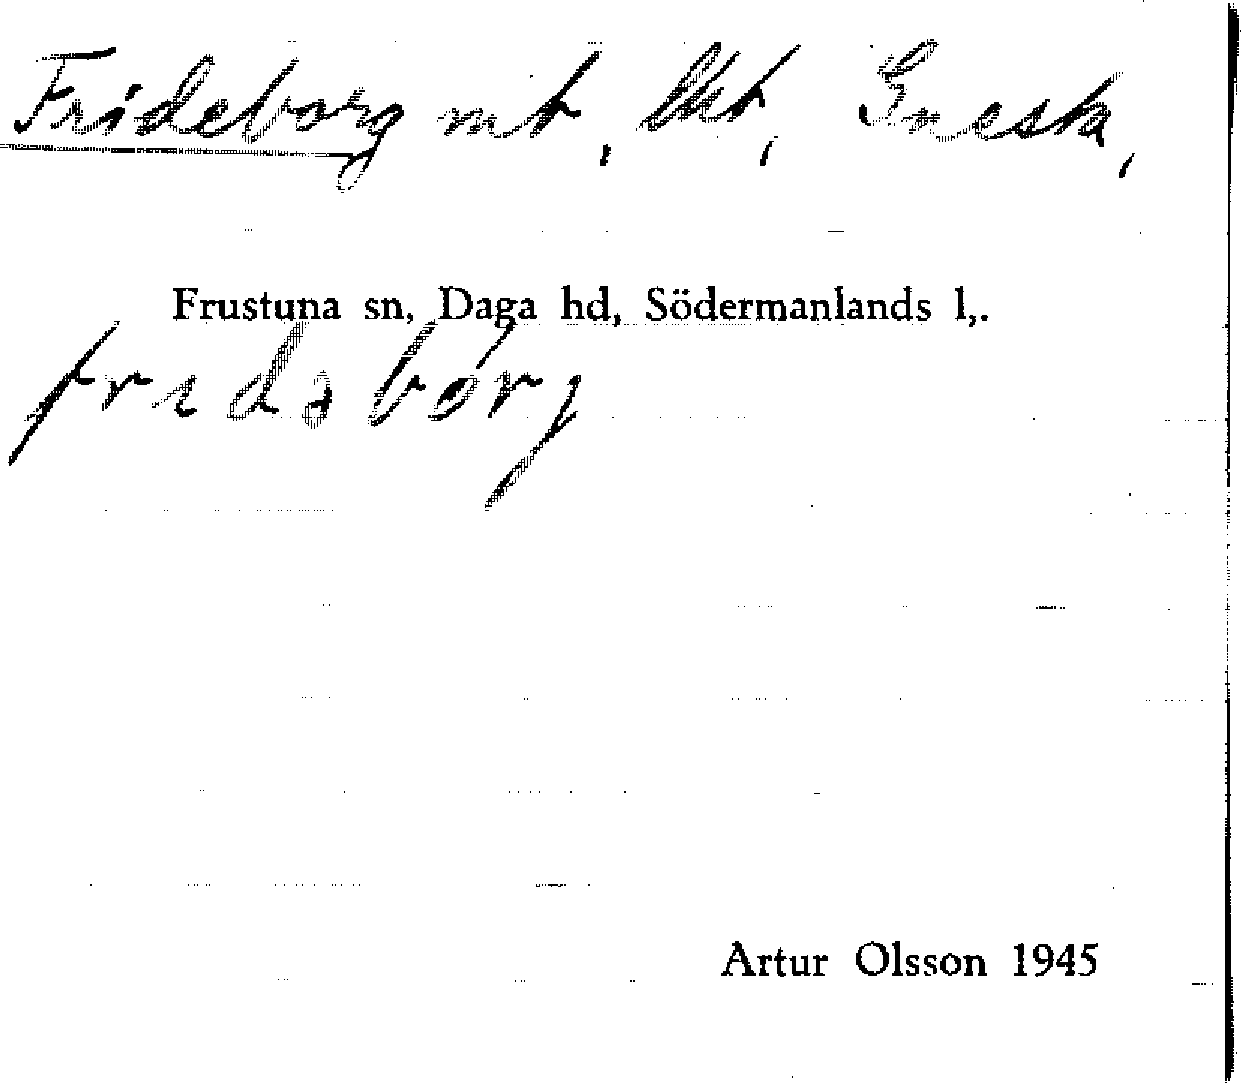 Frideborg mt, lht, Gnesta,
Frustuna sn, Daga hd, Södermanlands l,.
fridəbórj
Artur Olsson 1945